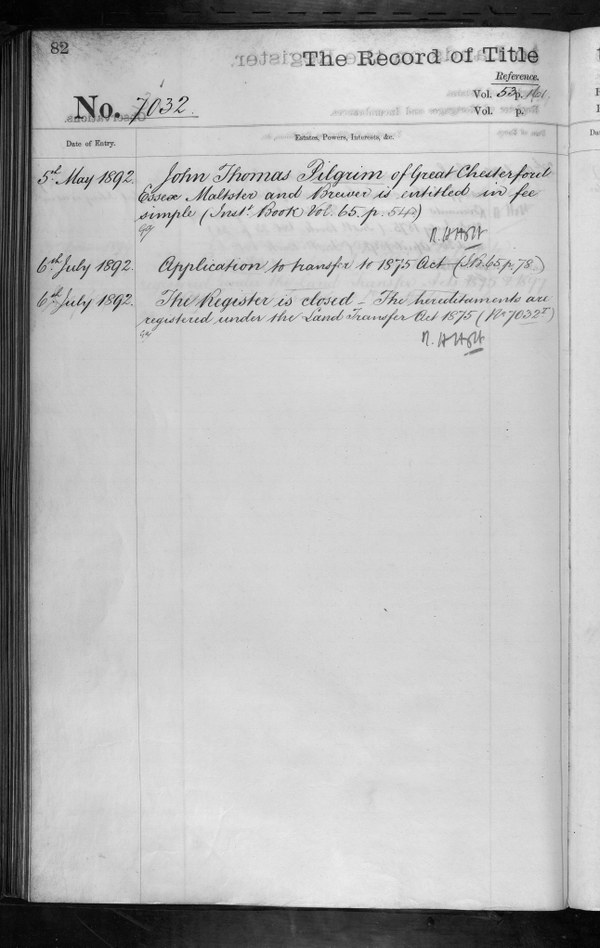 82
The Record of Title
Reference.
Vol. 53 p.
No. 7032.
Vol. p.
Date of Entry.
Estates, Powers, Interests, &c.
5th May 1892. John Thomas Pilgrim of Great Chesterford
Essex Maltster and Brewer is entitled in fee
simple (Inst. Book Vol. 65. p. 542)
R. H Holt
6th July 1892. Application to transfer to 1875 Act (I.B. 65 p. 78.)
6th July 1892. The Register is closed - The hereditaments are
registered under the Land Transfer Act 1875 (No 7032T)
R. H Holt